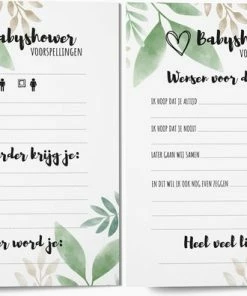 abyshower
VOORSPELLINGEN
rder krijg je:
er word je:
Babyshower
VOORSPELLINGEN
Wensen voor d
IK HOOP DAT JE ALTIJD
IK HOOP DAT JE NOOIT
LATER GAAN WIJ SAMEN
EN DIT WIL IK OOK NOG EVEN ZEGGEN
Heel veel li